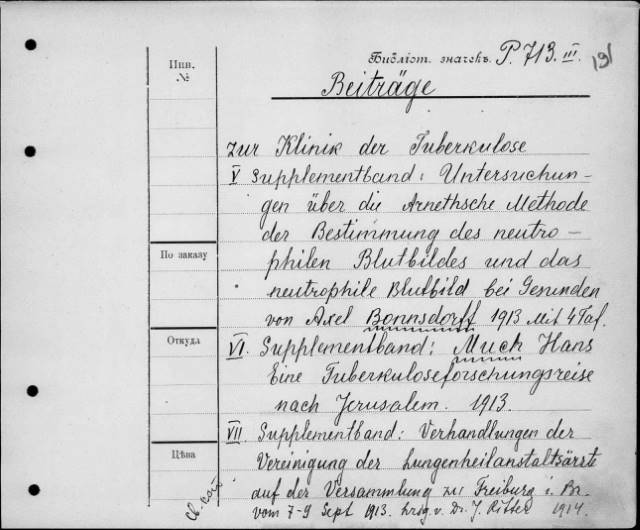 Инв. №
Библіот. значекъ. P. 713. III. 191
Beiträge
zur Klinik der Tuberkulose
V Supplementband: Untersuchun-
gen über die Arnethsche Methode
der Bestimmung des neutro-
philen Blutbildes und das
neutrophile Blutbild bei Gesunden
von Axel Bonnsdorff 1913 Mit 4 Taf.
VI. Supplementband: Much Hans
Eine Tuberkuloseforschungsreise
nach Jerusalem. 1913.
VII. Supplementband: Verhandlungen der
Vereinigung der Lungenheilanstaltsärzte
auf der Versammlung zu Freiburg i. Br.
vom 7-9 Sept 1913. hrsg. v. Dr. J. Ritter 1914.
По заказу
Откуда
Цѣна